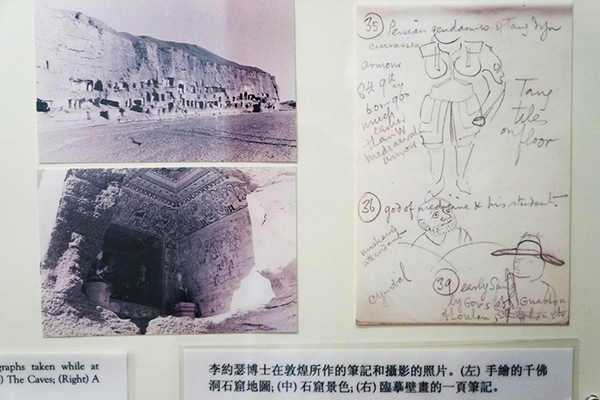 35 Persian gendarmes & Tang Dyn
cuirasses
armour
8th 9th
600-900
much
earlier
than W
mediaeval
armour
Tang
tiles
on
floor
36 god of medicine & his students
attendant
cymbal
39 early Sun
by Gov's of
Loulan,
graphs taken while at
) The Caves; (Right) A
李約瑟博士在敦煌所作的筆記和攝影的照片。(左) 手繪的千佛
洞石窟地圖; (中) 石窟景色; (右) 臨摹壁畫的一頁筆記。